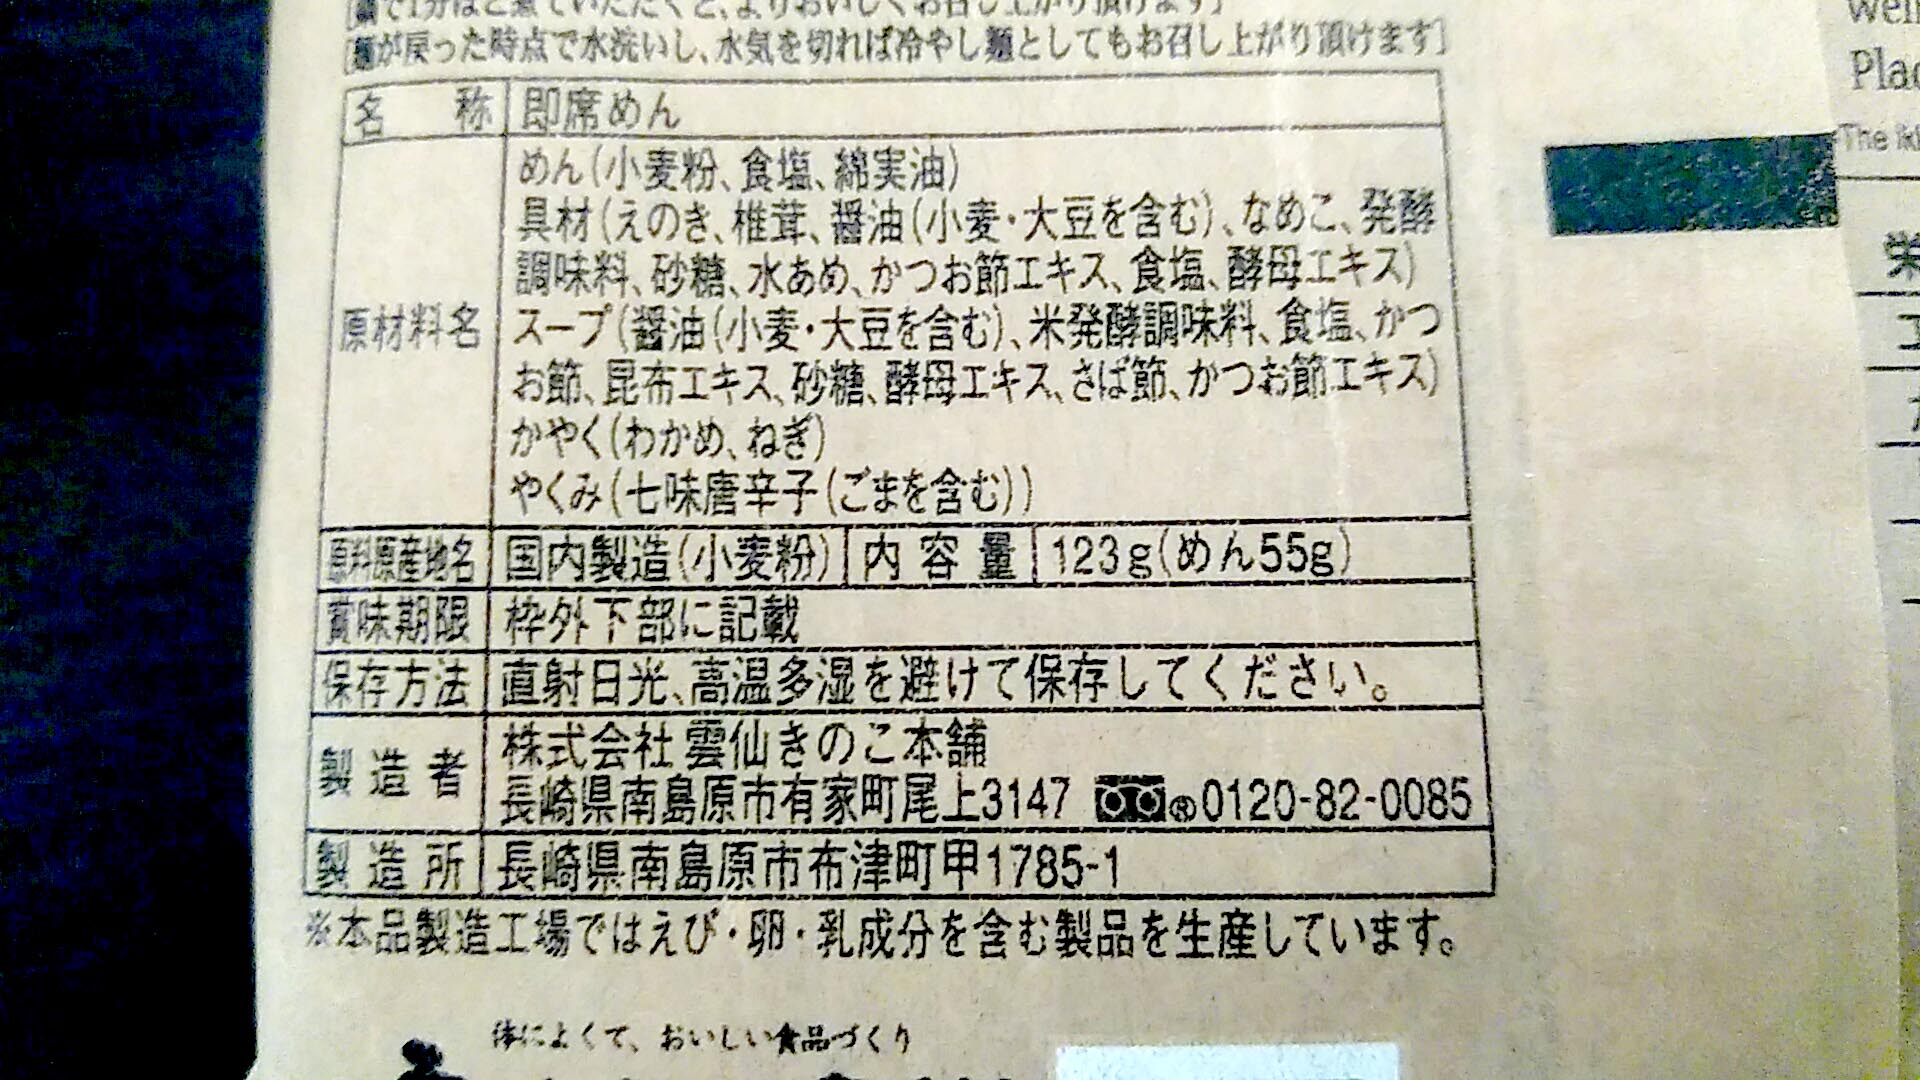 鍋で1分ほど煮ていただくと、よりおいしくお召し上がり頂けます]
[麺が戻った時点で水洗いし、水気を切れば冷やし麺としてもお召し上がり頂けます]
名 称 即席めん
原材料名
めん(小麦粉、食塩、綿実油)
具材(えのき、椎茸、醤油(小麦・大豆を含む)、なめこ、発酵
調味料、砂糖、水あめ、かつお節エキス、食塩、酵母エキス)
スープ(醤油(小麦・大豆を含む)、米発酵調味料、食塩、かつ
お節、昆布エキス、砂糖、酵母エキス、さば節、かつお節エキス)
かやく(わかめ、ねぎ)
やくみ(七味唐辛子(ごまを含む))
原料原産地名 国内製造(小麦粉) 内容量 123g(めん55g)
賞味期限 枠外下部に記載
保存方法 直射日光、高温多湿を避けて保存してください。
製造者
株式会社 雲仙きのこ本舗
長崎県南島原市有家町尾上3147 0120-82-0085
製造所 長崎県南島原市布津町甲1785-1
※本品製造工場ではえび・卵・乳成分を含む製品を生産しています。
体によくて、おいしい食品づくり
The